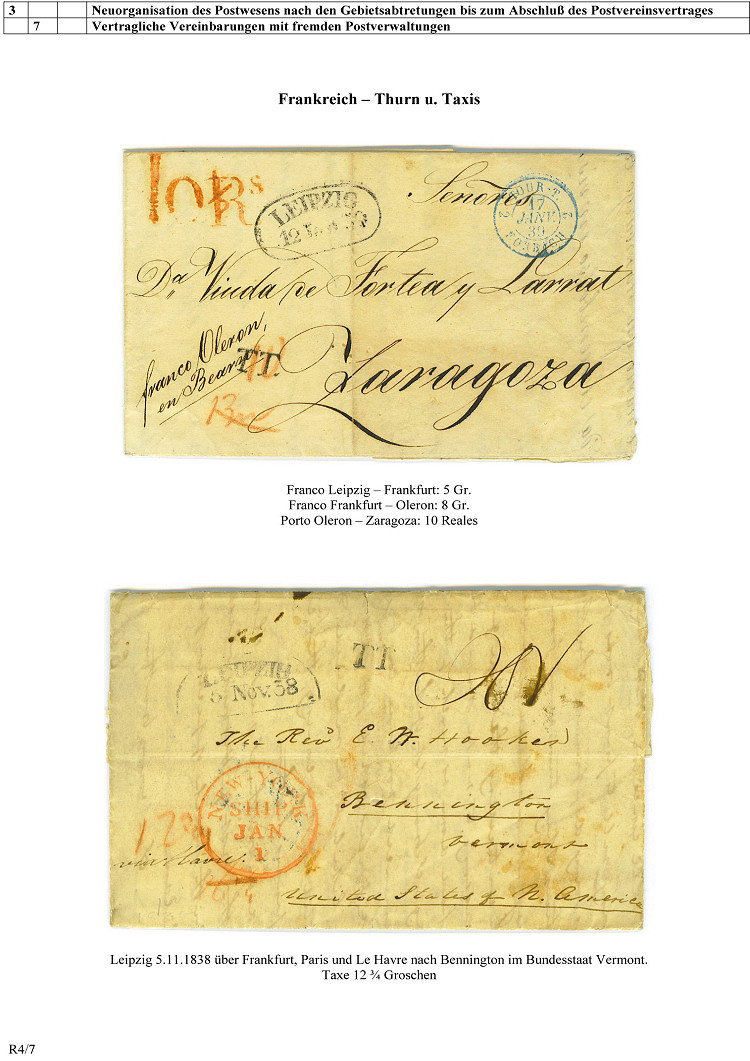 3 Neuorganisation des Postwesens nach den Gebietsabtretungen bis zum Abschluß des Postvereinsvertrages
7 Vertragliche Vereinbarungen mit fremden Postverwaltungen
Frankreich – Thurn u. Taxis
10 Rs
LEIPZIG
12 Jan 39
Señores
TOUR-T
17
JANV
39
FORBACH
Da Viuda de Fortea y Larrat
franco Oleron,
en Bearn
TT
Zaragoza
13
Franco Leipzig – Frankfurt: 5 Gr.
Franco Frankfurt – Oleron: 8 Gr.
Porto Oleron – Zaragoza: 10 Reales
TT
LEIPZIG
5 Nov. 38
The Revd E. W. Hooker
NEW YORK
SHIP
JAN
1
Bennington
Vermont
via Havre.
United States of N. America
Leipzig 5.11.1838 über Frankfurt, Paris und Le Havre nach Bennington im Bundesstaat Vermont.
Taxe 12 ¾ Groschen
R4/7